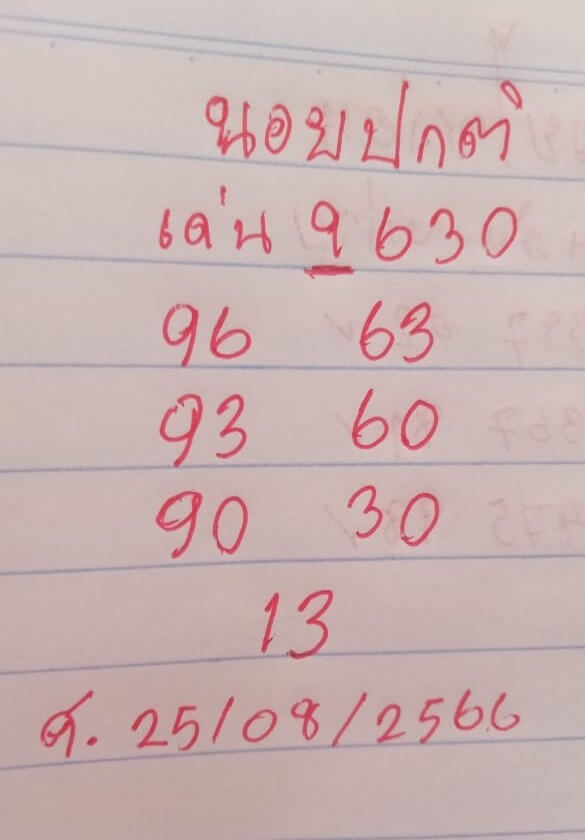 นอยปกติ
เด่น 9 6 3 0
96 63
93 60
90 30
13
ศ. 25/08/2566